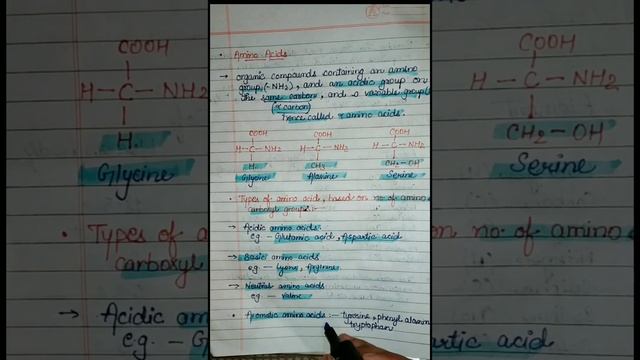 • Amino Acids.
→ organic compounds containing an amino
group (-NH2), and an acidic group on
the same carbon, and a variable group
(α carbon)
hence called α amino acids.
COOH COOH COOH
H-C-NH2 H-C-NH2 H-C-NH2
H. CH3 CH2-OH
Glycine Alanine Serine
• Types of amino acid, based on no. of amino
carboxyl groups:-
→ Acidic amino acids.
eg. - Glutamic acid, Aspartic acid
→ Basic amino acids
eg - Lysine,
→ Neutral amino acids
eg - Valine
• Aromatic amino acids :- tyrosine, phenyl
tryptophan
COOH
H-C-NH2
H.
Glycine
• Types of
carboxyl
→ Acidic
e.g. - G
COOH
H-C-NH2
CH2-OH
Serine
on no. of amino
partic acid